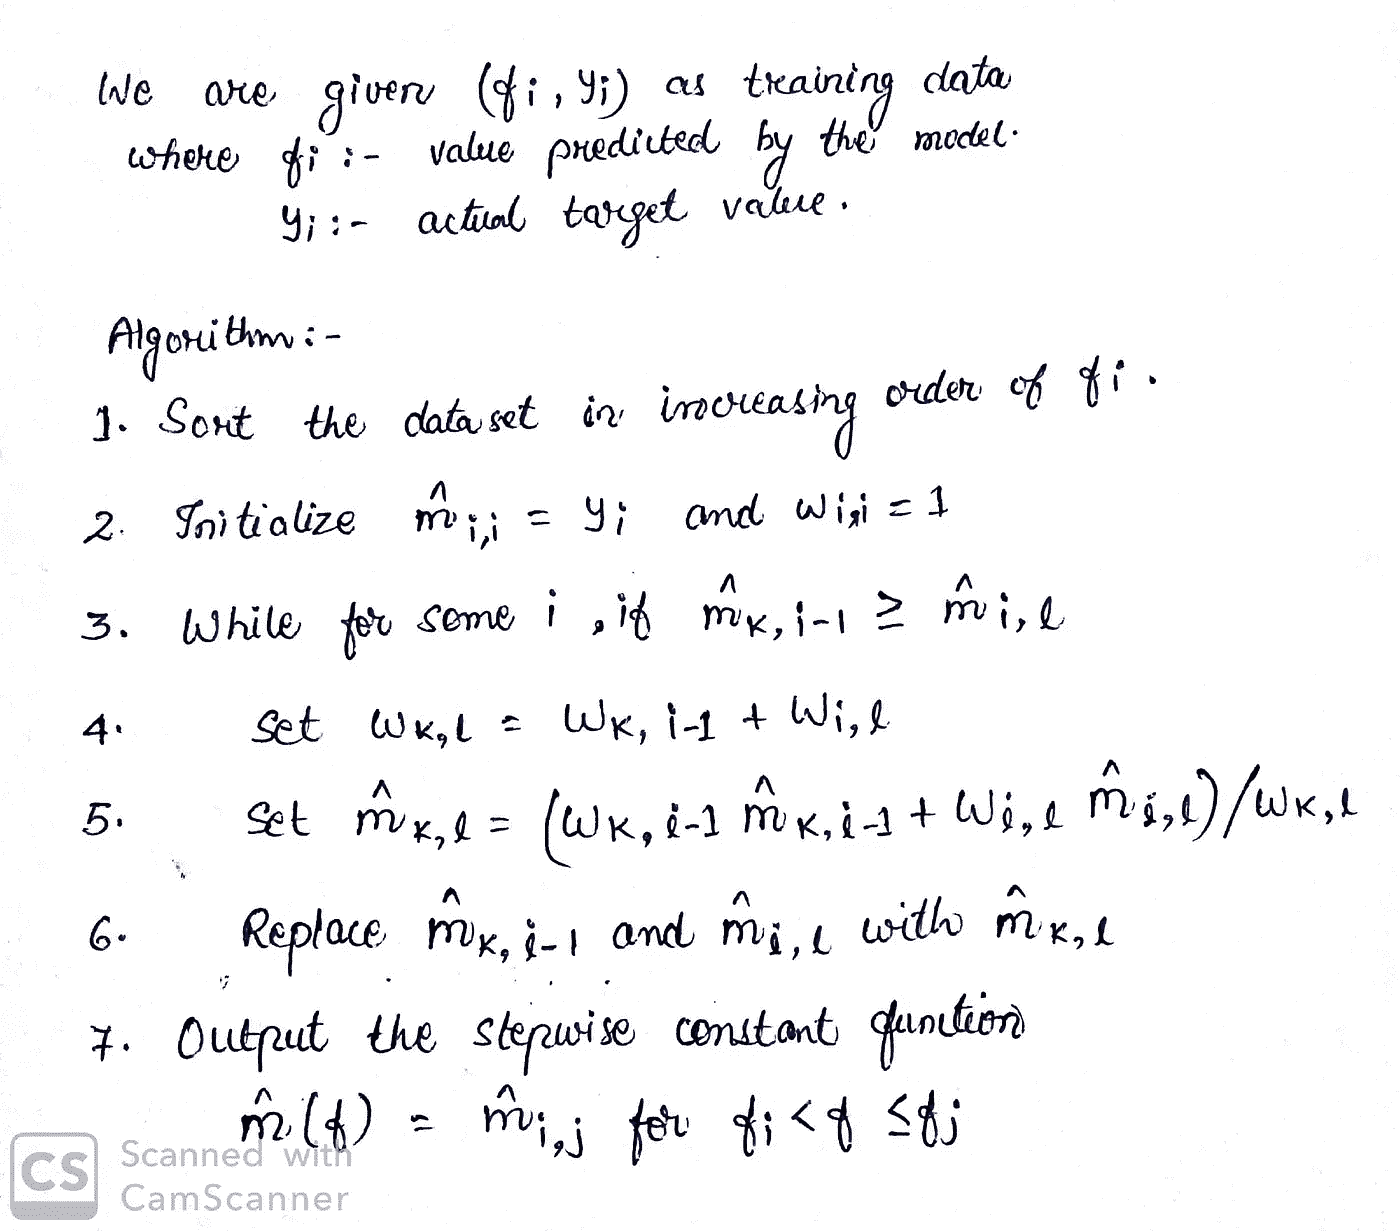 We are given (fi, yi) as training data
where fi :- value predicted by the model.
yi :- actual target value.
Algorithm :-
1. Sort the dataset in increasing order of fi.
2. Initialize m̂i,i = yi and wi,i = 1
3. While for some i, if m̂k,i-1 ≥ m̂i,l
4. Set wk,l = wk,i-1 + wi,l
5. Set m̂k,l = (wk,i-1 m̂k,i-1 + wi,l m̂i,l)/wk,l
6. Replace m̂k,i-1 and m̂i,l with m̂k,l
7. Output the stepwise constant function
m̂(f) = m̂i,j for fi < f ≤ fj
CS Scanned with
CamScanner